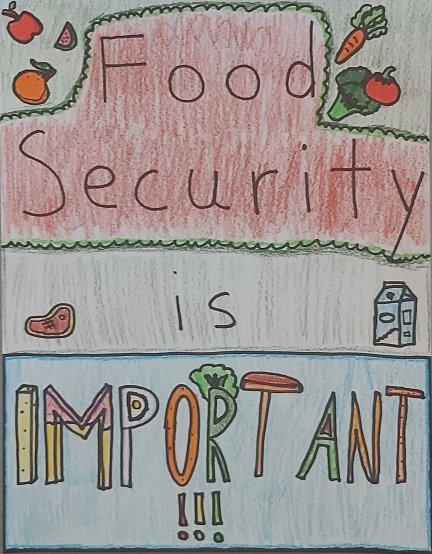 Food
Security
is
IMPORTANT
!!!